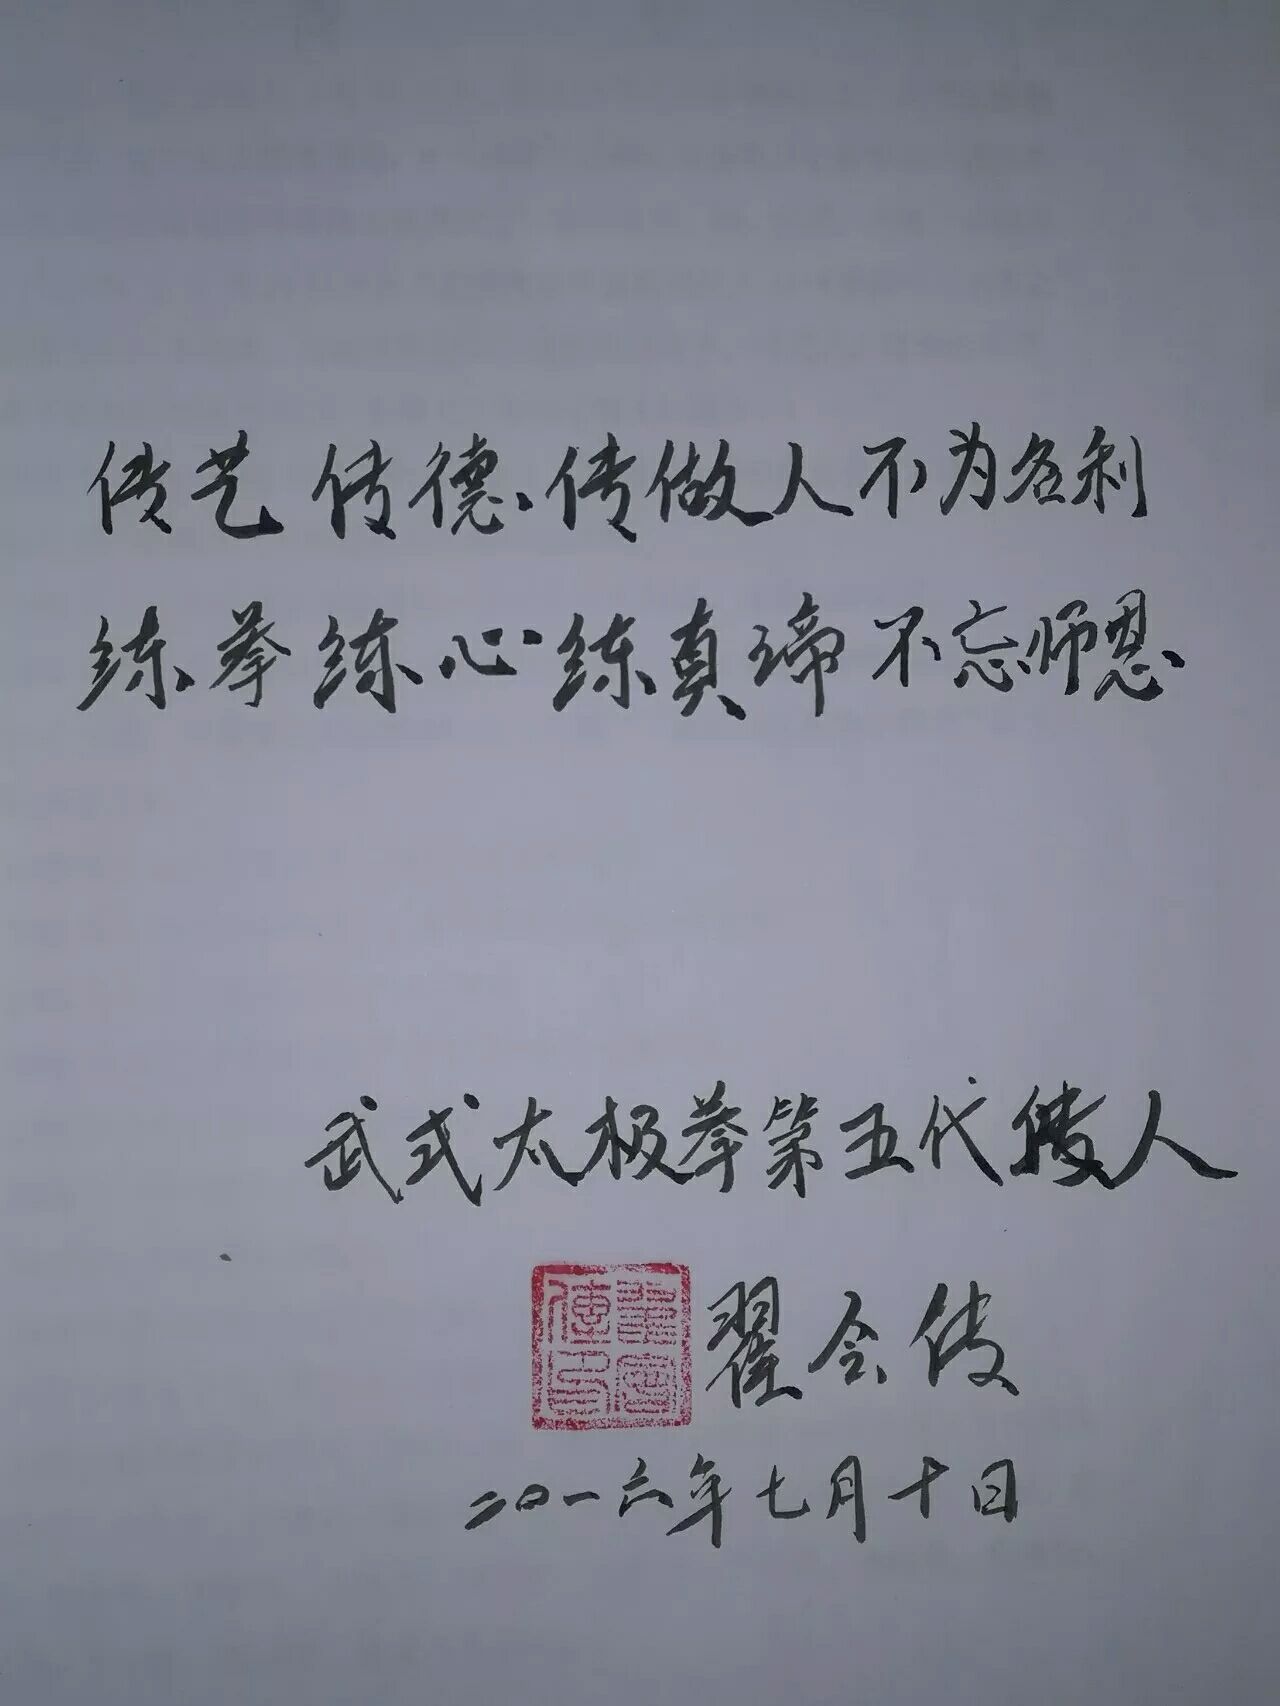 传艺 传德、传做人不为名利
练拳练心练真谛不忘师恩
武式太极拳第五代传人
翟会传
二〇一六年七月十日